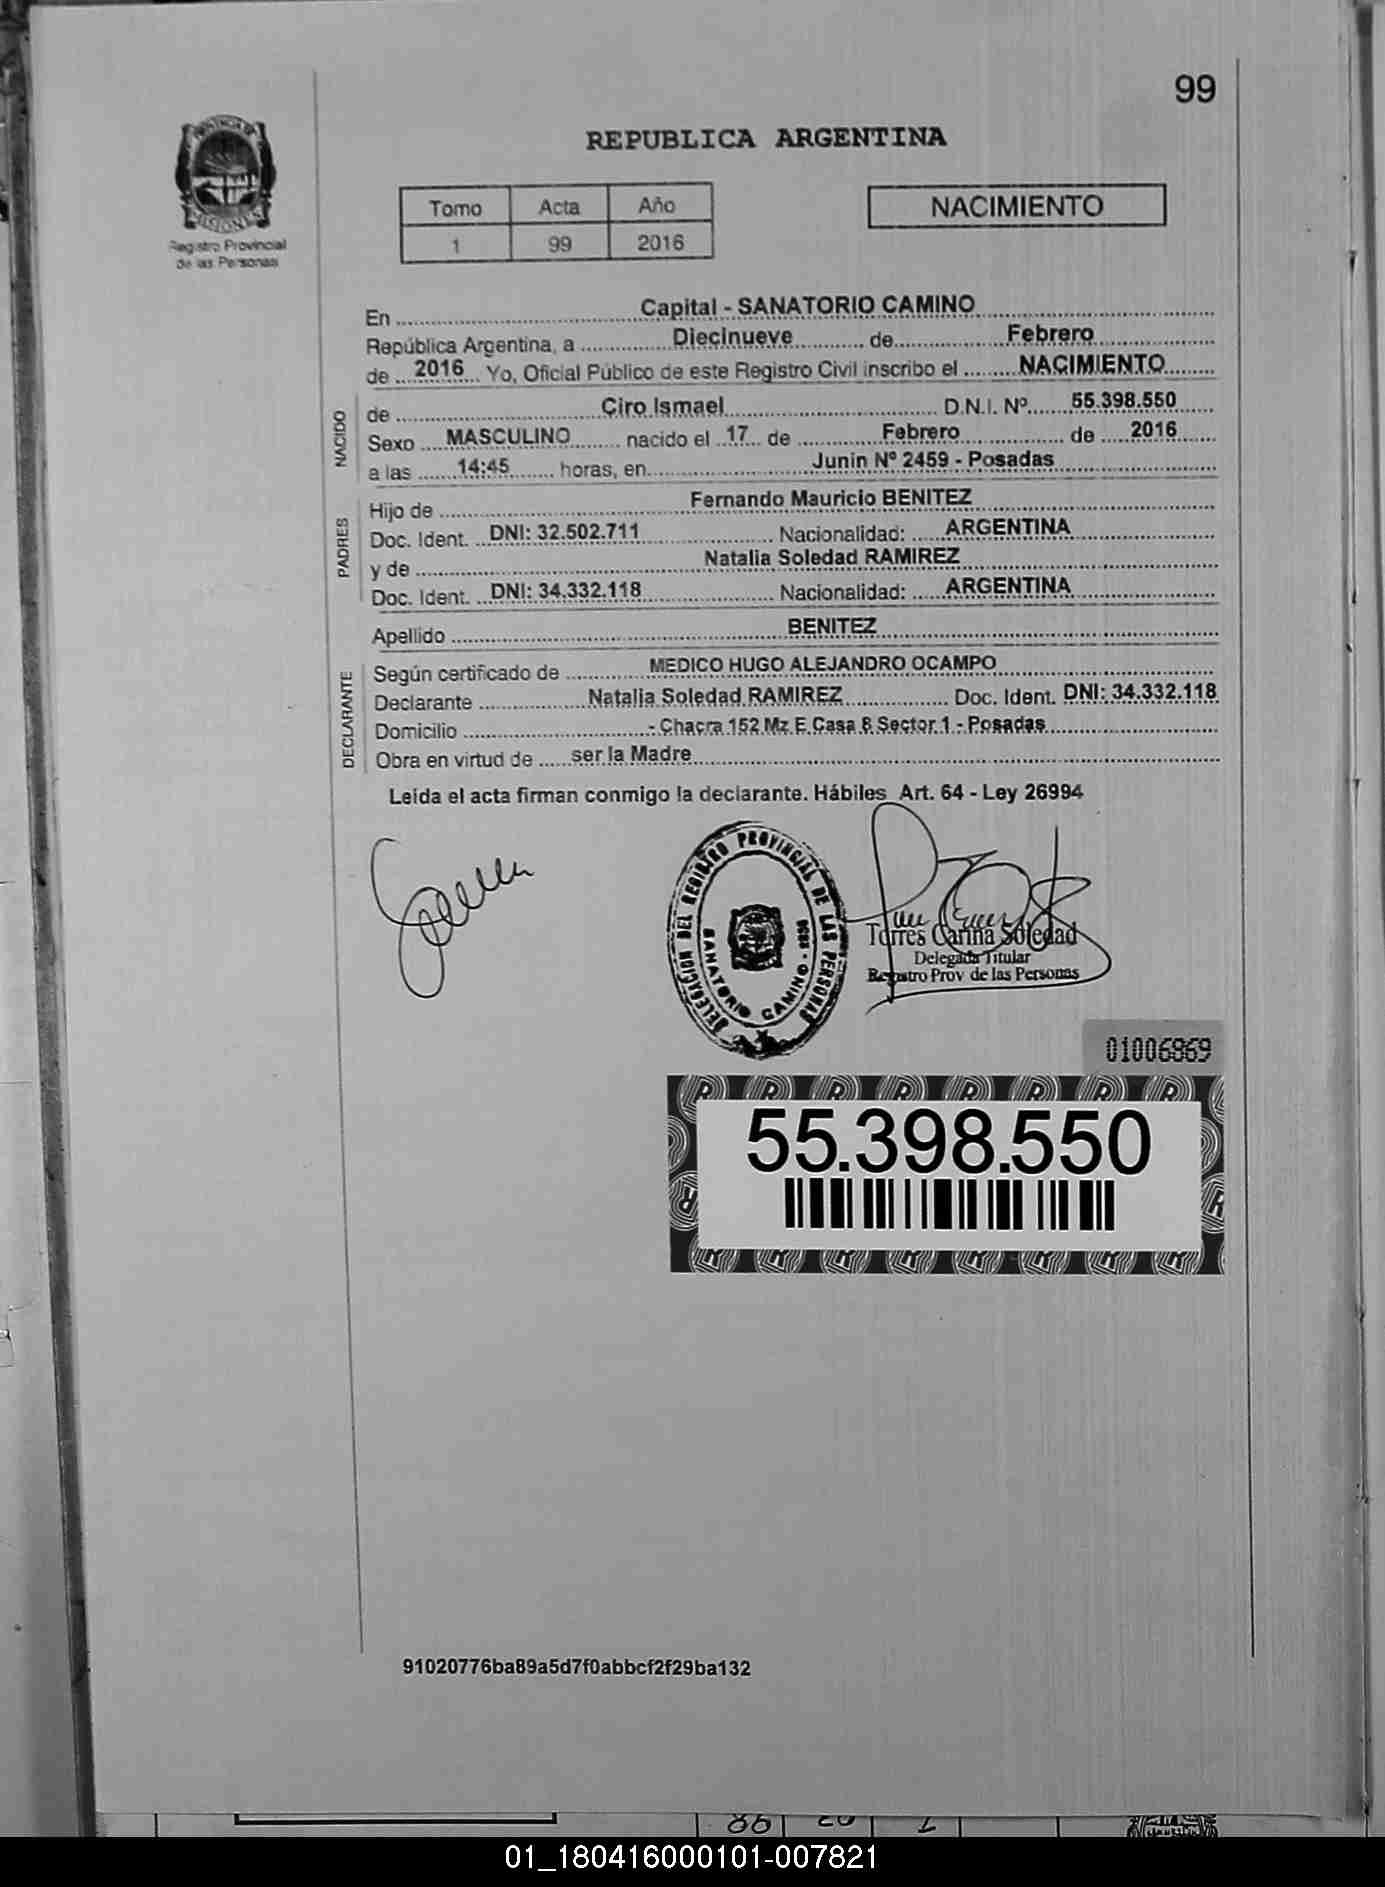 99
REPUBLICA ARGENTINA
PROVINCIA DE MISIONES
Registro Provincial
de las Personas
Tomo Acta Año
1 99 2016
NACIMIENTO
En Capital - SANATORIO CAMINO
República Argentina, a Diecinueve de Febrero
de 2016 Yo, Oficial Público de este Registro Civil inscribo el NACIMIENTO
NACIDO
de Ciro Ismael D.N.I. Nº 55.398.550
Sexo MASCULINO nacido el 17 de Febrero de 2016
a las 14:45 horas, en Junin Nº 2459 - Posadas
PADRES
Hijo de Fernando Mauricio BENITEZ
Doc. Ident. DNI: 32.502.711 Nacionalidad: ARGENTINA
y de Natalia Soledad RAMIREZ
Doc. Ident. DNI: 34.332.118 Nacionalidad: ARGENTINA
Apellido BENITEZ
DECLARANTE
Según certificado de MEDICO HUGO ALEJANDRO OCAMPO
Declarante Natalia Soledad RAMIREZ Doc. Ident. DNI: 34.332.118
Domicilio - Chacra 152 Mz E Casa 8 Sector 1 - Posadas
Obra en virtud de ser la Madre
Leida el acta firman conmigo la declarante. Hábiles Art. 64 - Ley 26994
DELEGACION DEL REGISTRO PROVINCIAL DE LAS PERSONAS
SANATORIO CAMINO
Torres Carina Soledad
Delegada Titular
Registro Prov de las Personas
01006869
55.398.550
91020776ba89a5d7f0abbcf2f29ba132
01_180416000101-007821